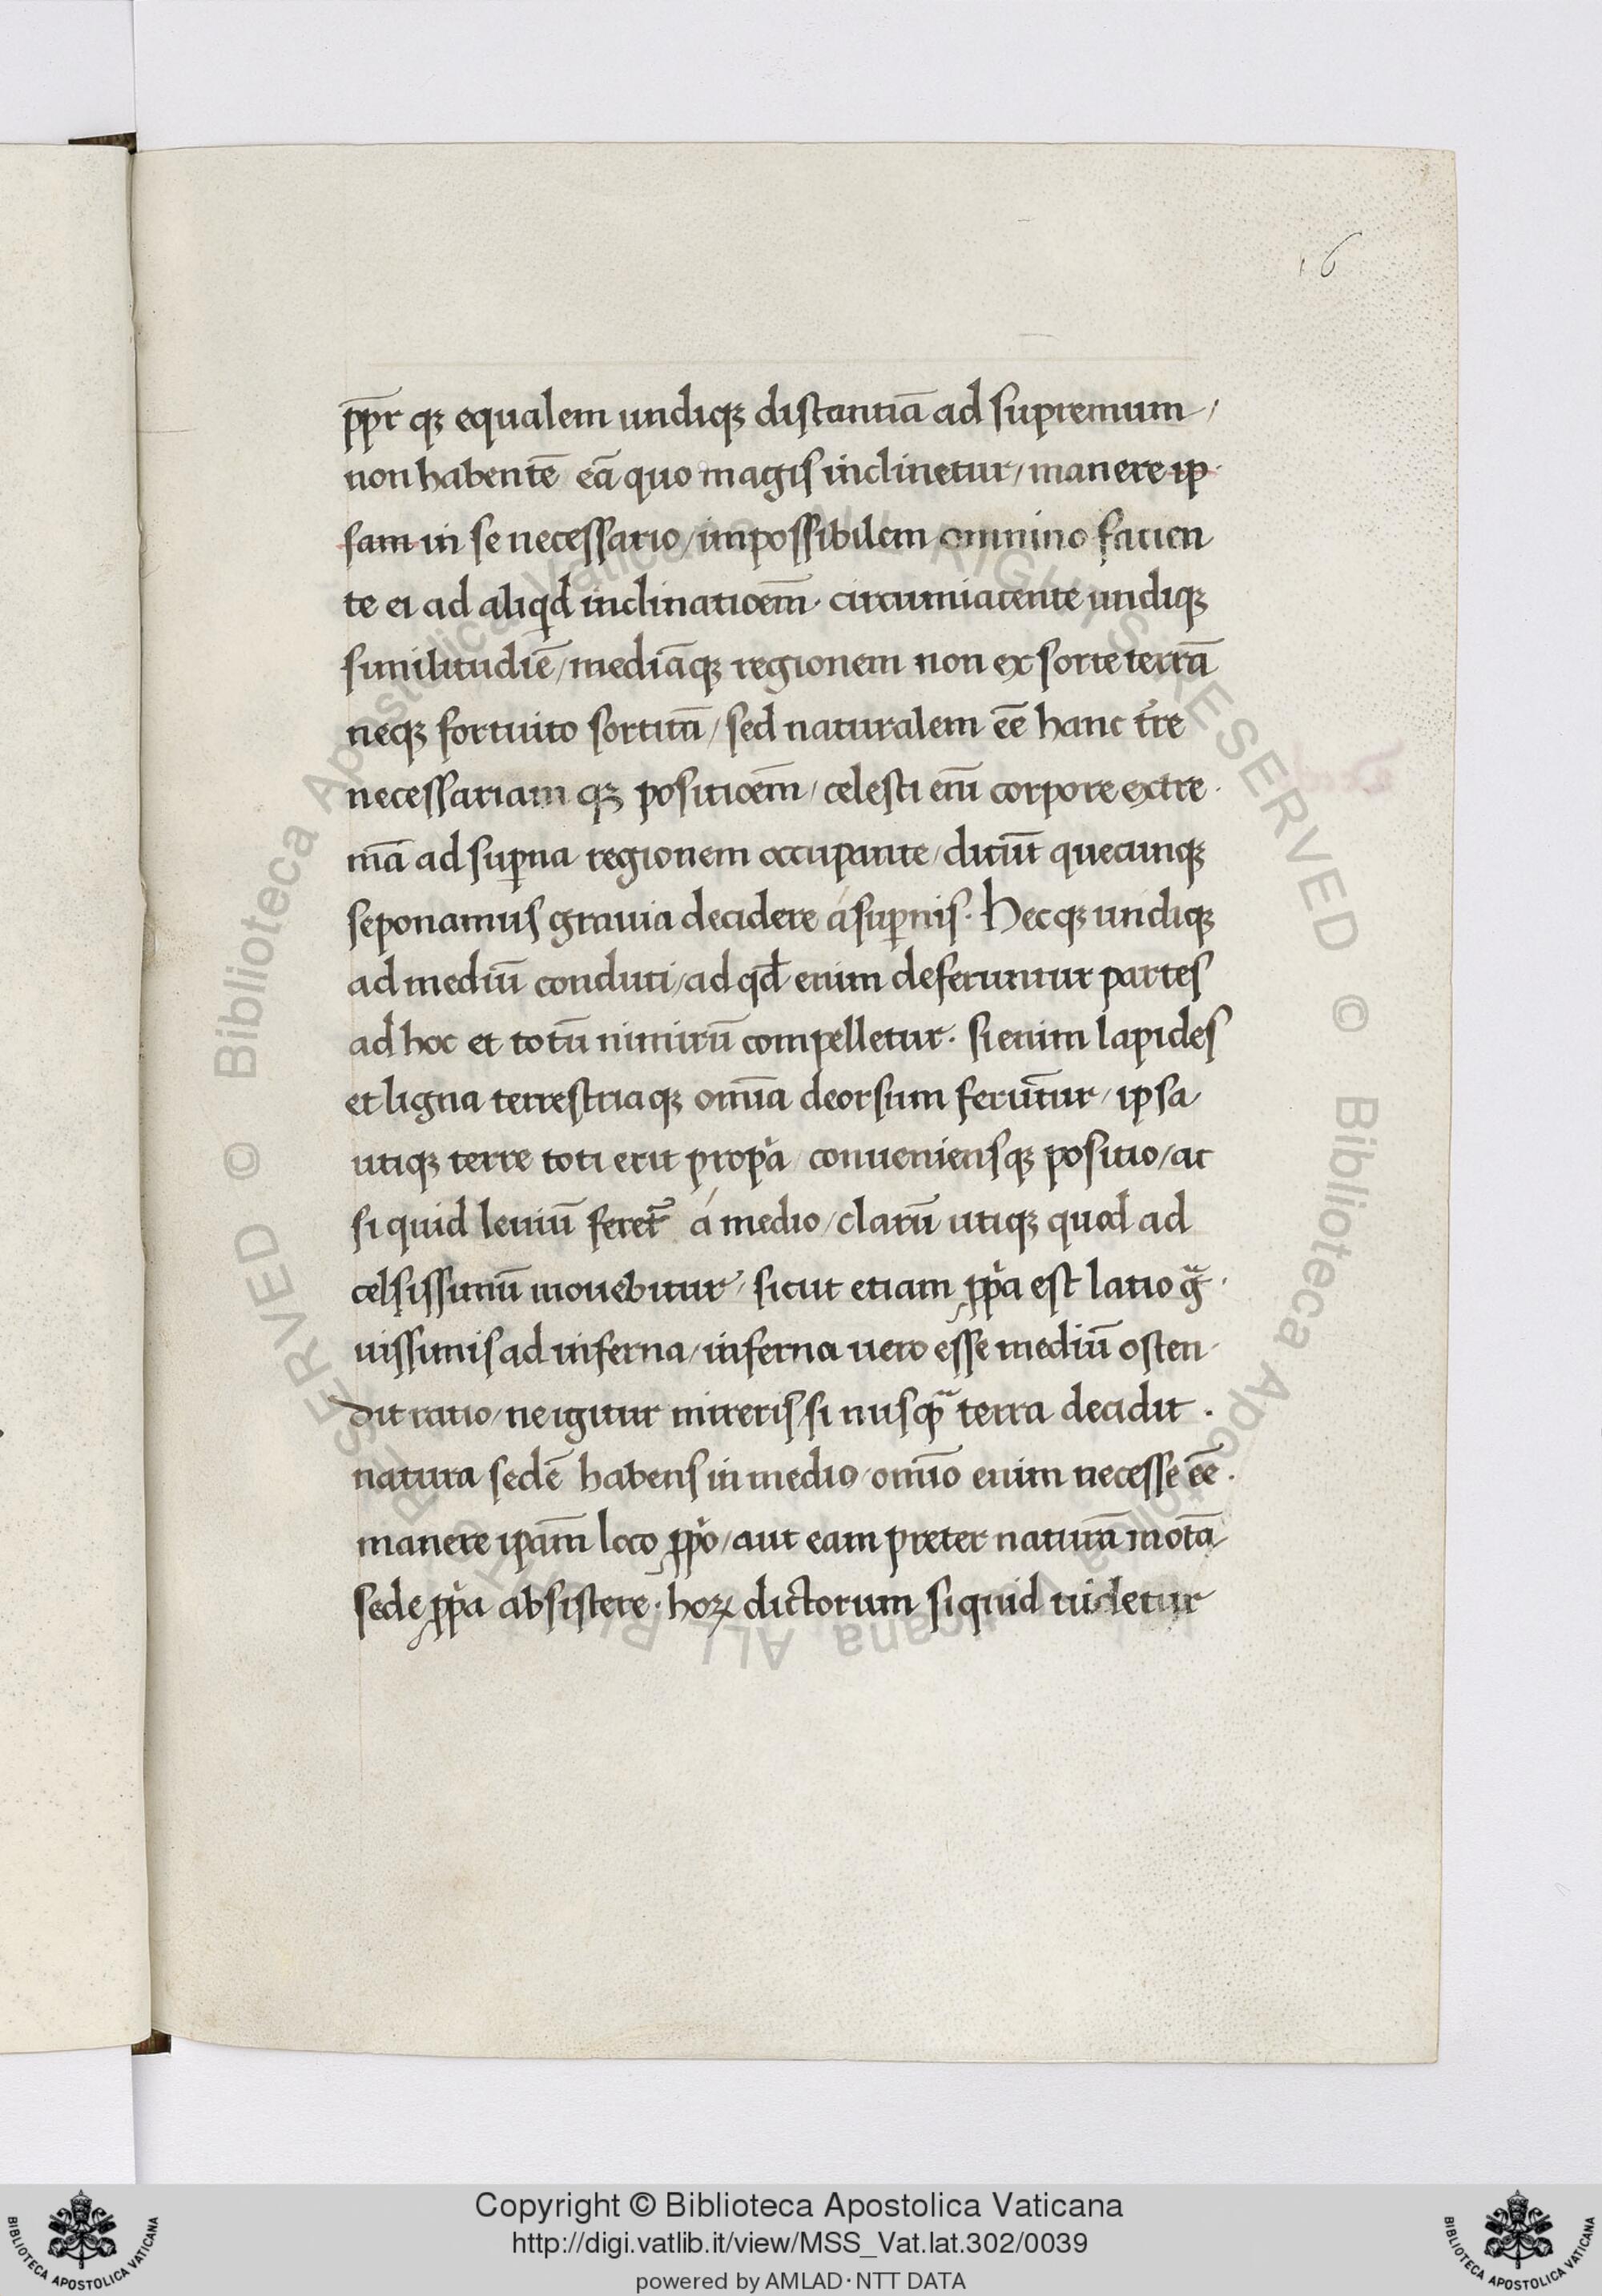 16
pp̄r qꝫ equalem undiqꝫ distantiā ad supremum /
non habentē eā quo magis inclinetur / manere ip
sam in se necessario / impossibilem omnino facien
te ei ad aliqd̄ inclinatioem̄ · circumiacente undiqꝫ
similitudiē / mediāqꝫ regionem non ex sorte terrā
neqꝫ fortuito sortitā / sed naturalem eē hanc tr̄e
necessariam qꝫ positioem̄ / celesti enī corpore extre
mā ad suꝑna regionem occupante / dictū quecunqꝫ
seponamus gravia decidere á suꝑnis · Hecqꝫ undiqꝫ
ad mediū conduci / ad qd̄ enim deferuntur partes
ad hoc et totū nimirū compelletur · si enim lapides
et ligna terrestriaqꝫ omīa deorsum ferūtur / ipsa
utiqꝫ terre toti erit propͥa / conueniensqꝫ positio / ac
si quid leuiū feret᷑ á medio / clarū utiqꝫ quod ad
celsissimū mouebitur / sicut etiam ꝓpͥa est latio gͣ
uissimis ad inferna / inferna uero esse mediū osten
dit ratio / ne igitur mireris / si nusqͣ terra decidit ·
natura sedē habens in medio / omīo enim necesse eē ·
manere ipam̄ loco ꝓpͥo / aut eam preter naturā motā
sede ꝓpͥa absistere · hoꝝ dictorum siquid uidetur
Copyright © Biblioteca Apostolica Vaticana
http://digi.vatlib.it/view/MSS_Vat.lat.302/0039
powered by AMLAD·NTT DATA
BIBLIOTECA APOSTOLICA VATICANA
BIBLIOTECA APOSTOLICA VATICANA
© Biblioteca Apostolica Vaticana ALL RIGHTS RESERVED
© Biblioteca Apostolica Vaticana ALL RIGHTS RESERVED